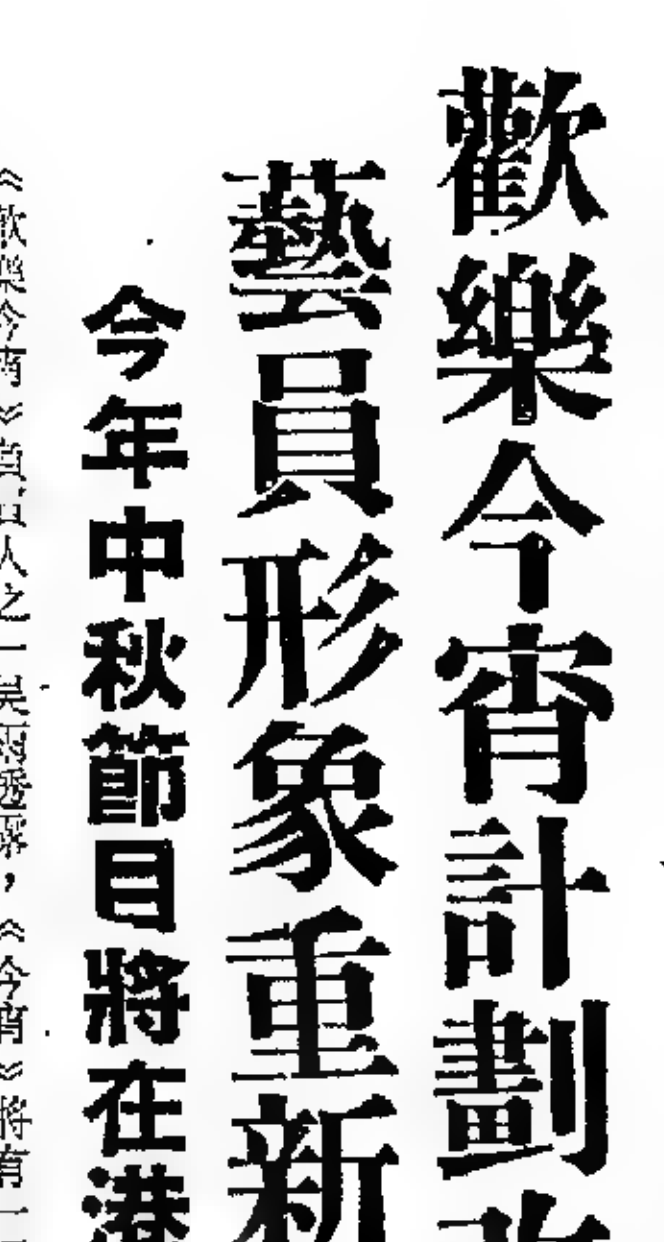 歡樂今宵計劃
藝員形象重新
今年中秋節目將在港
《歡樂今宵》負責人之一吳雨透露，《今宵》將有一